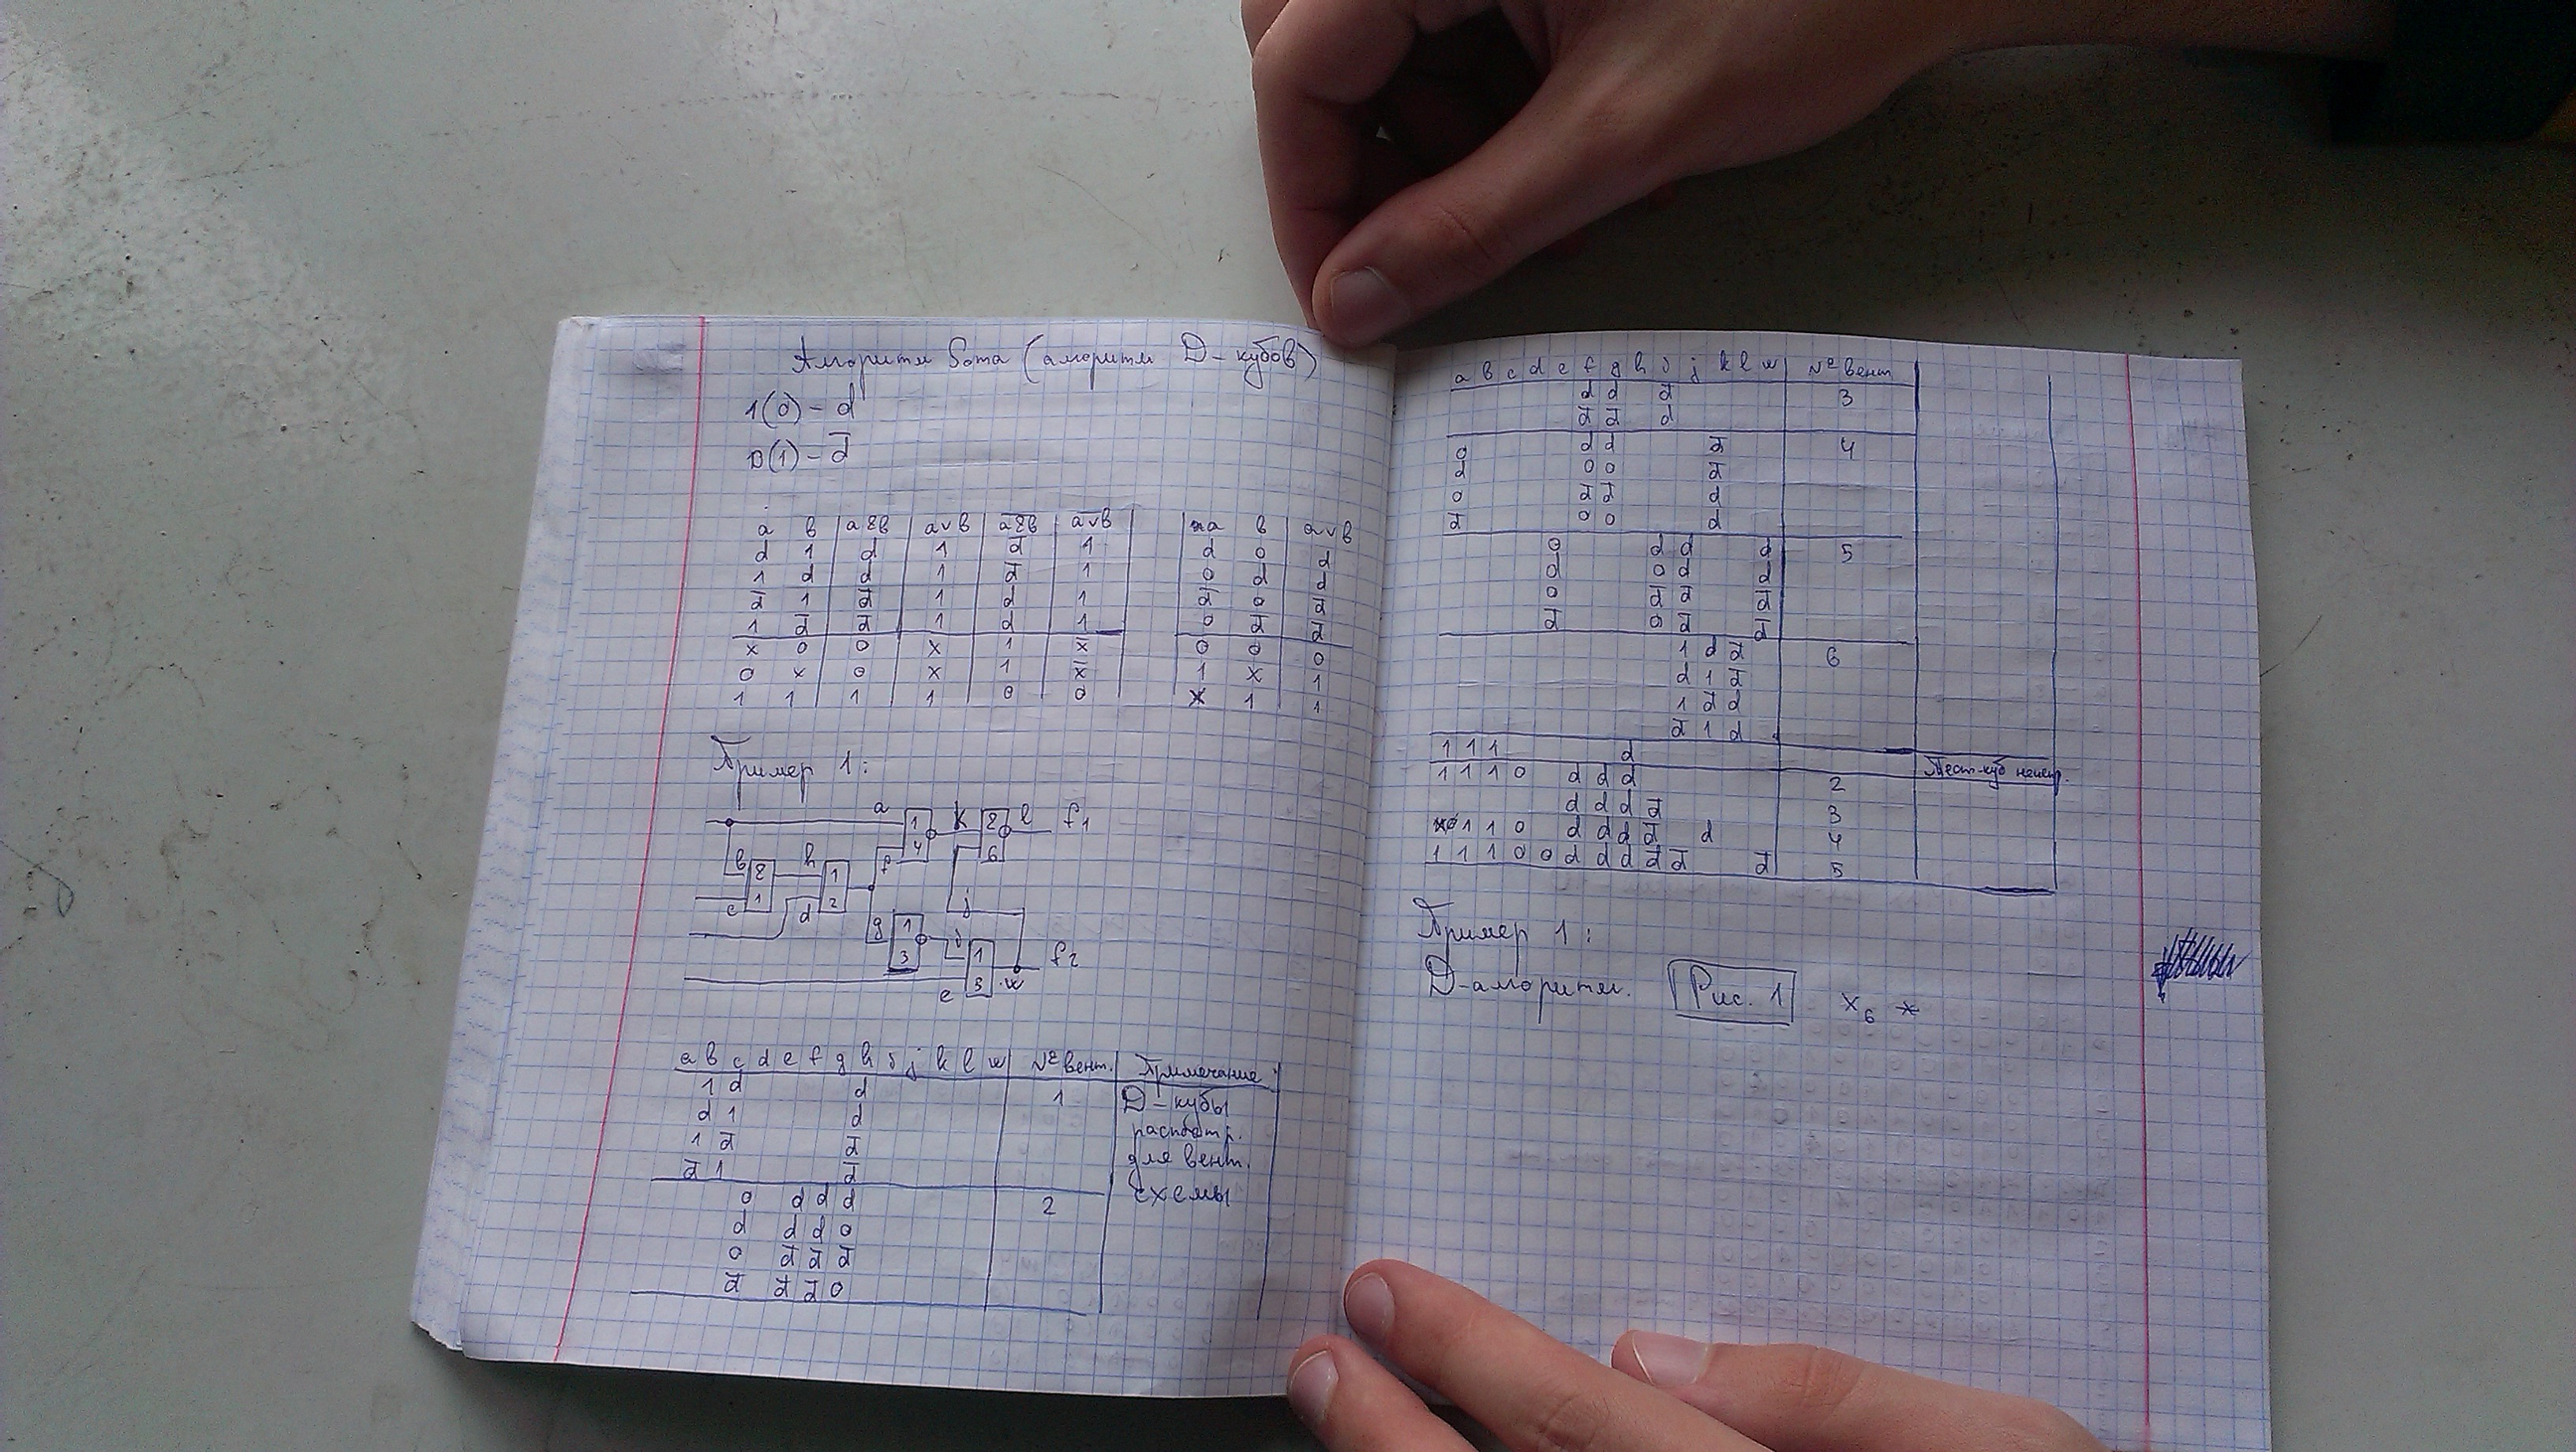 Алгоритм Рота (алгоритм D-кубов)
1(0) - d
0(1) - d̅
a b a&b a∨b a&b̅ a∨b̅
d 1 d 1 d̅ 1
1 d d 1 d̅ 1
d̅ 1 d̅ 1 d 1
1 d̅ d̅ 1 d 1
x 0 0 x 1 x̅
0 x 0 x 1 x̅
1 1 1 1 0 0
a b a∨b
d 0 d
0 d d
d̅ 0 d̅
0 d̅ d̅
0 0 0
1 x 1
x 1 1
Пример 1:
a 1 4 k & 6 l f1
b & 1 h 1 2 f
c d
g 1 3 i j 1 5 f2
e
a b c d e f g h i j k l № вент. Примечание
1 d d 1 D-кубы
d 1 d распостр.
1 d̅ d̅ для вент.
d̅ 1 d̅ схемы
0 d d d 2
d d d 0
0 d̅ d̅ d̅
d̅ d̅ d̅ 0
a b c d e f g h i j k l № вент
d d d̅ 3
d̅ d̅ d
0 d d d̅ 4
d 0 0 d̅
0 d̅ d̅ d
d̅ 0 0 d
0 d d d 5
d 0 d d
0 d̅ d̅ d̅
d̅ 0 d̅ d̅
1 d d̅ 6
d 1 d̅
1 d̅ d
d̅ 1 d
1 1 1 d
1 1 1 0 d d d 2
d d d d̅ 3
1 1 0 d d d d̅ d 4
1 1 1 0 0 d d d d̅ d̅ d̅ 5
Пример 1:
D-алгоритм. Рис. 1 x6 *